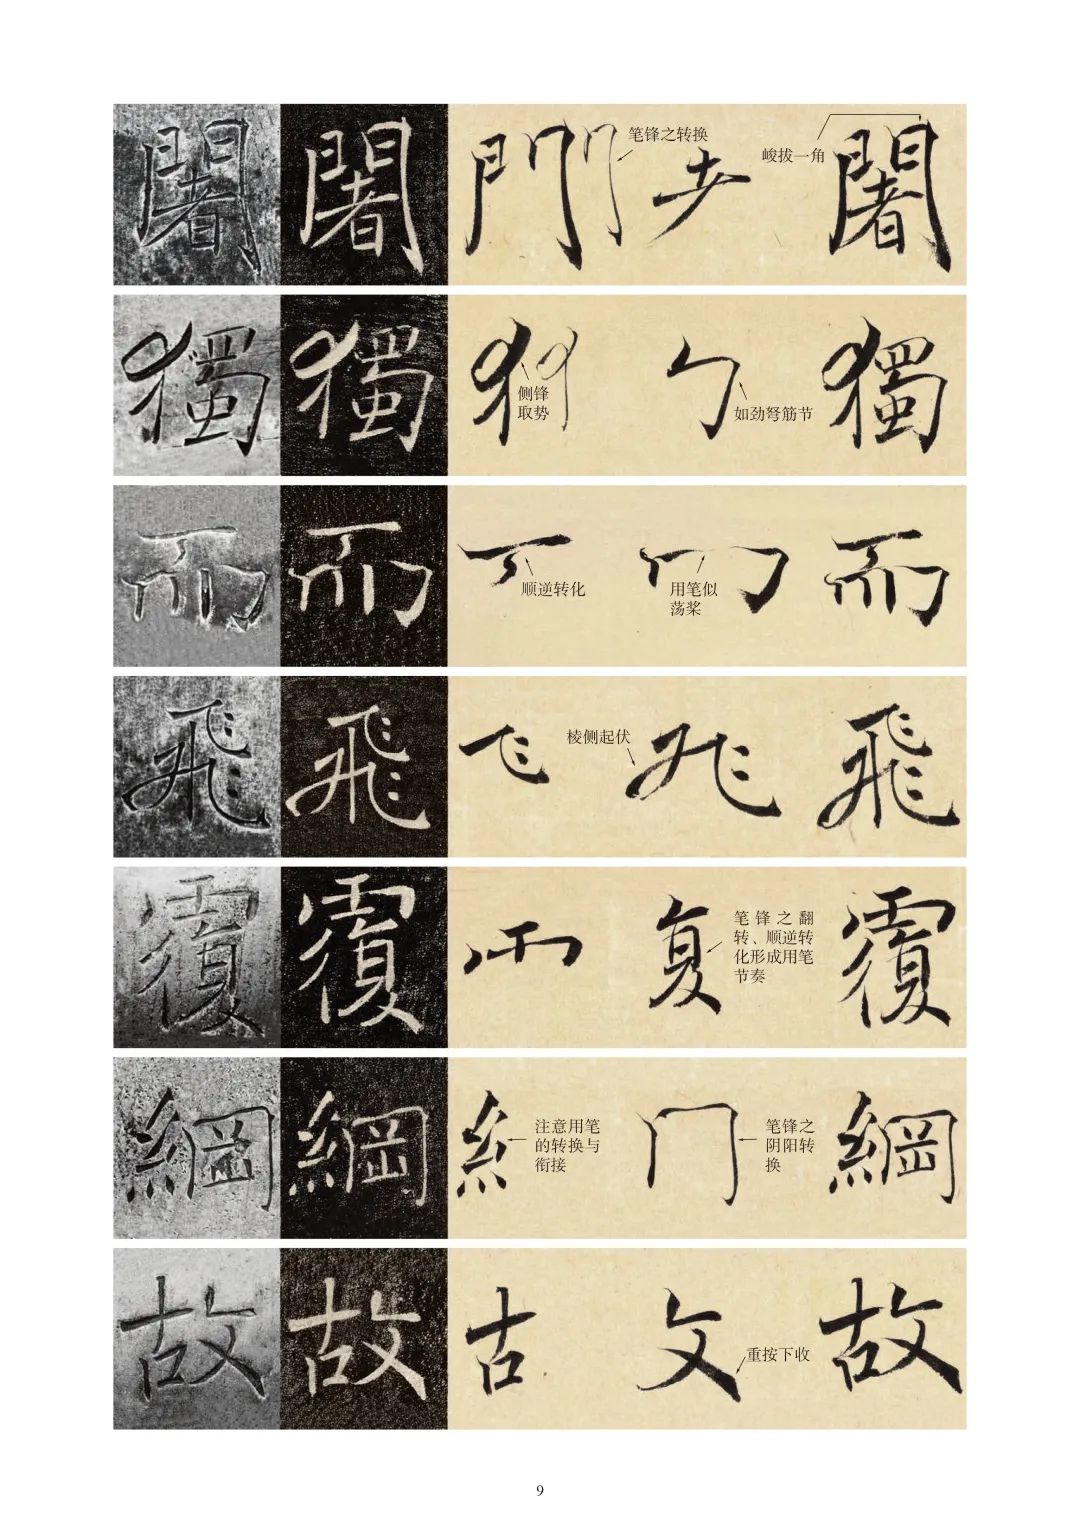 闍 闍 門 笔锋之转换 者 峻拔一角 闍
獨 獨 犭 侧锋 勹 如劲弩筋节 獨
取势
而 而 丆 顺逆转化 冂 用笔似 而
荡桨
飛 飛 飞 棱侧起伏 飛
覆 覆 覀 复 笔锋之翻 覆
转、顺逆转
化形成用笔
节奏
綱 綱 糹 注意用笔 冂 笔锋之 綱
的转换与 阴阳转
衔接 换
故 故 古 攵 重按下收 故
9